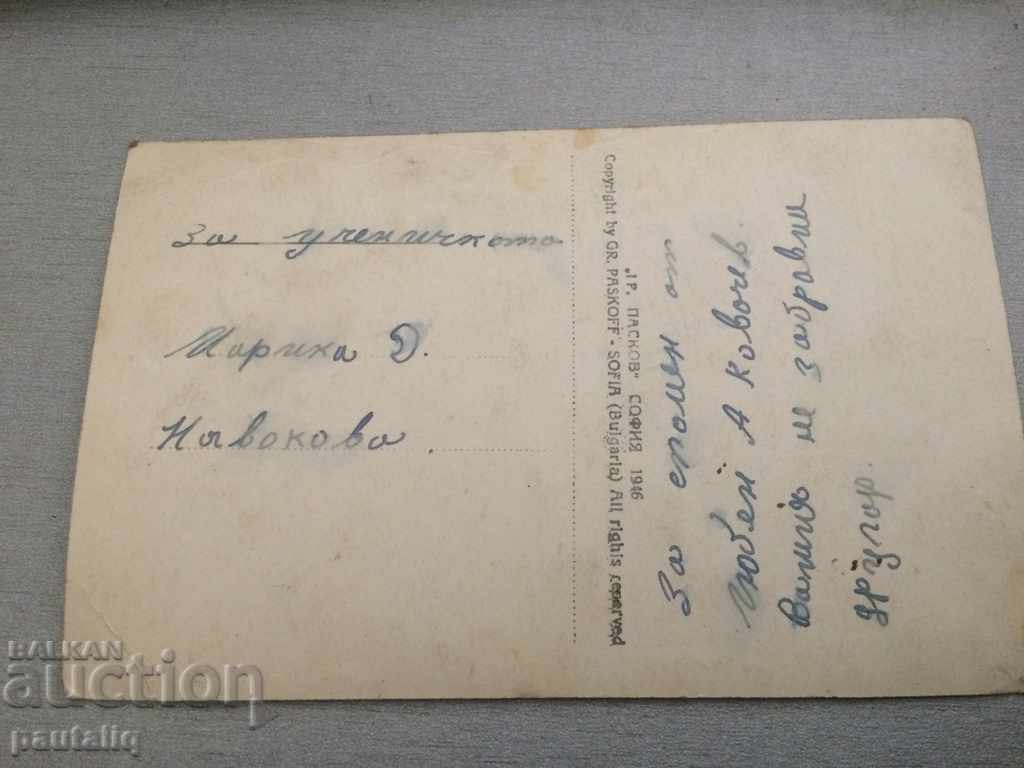 За ученичката
Марика Д.
Новакова
„ГР. ПАСКОВ" СОФИЯ 1946
Copyright by GR. PASKOFF - SOFIA (Bulgaria) All rights reserved
За спомен от
Любен А Ковачев.
Вашия не забравим
другар.
BALKAN
auction
pautaliq